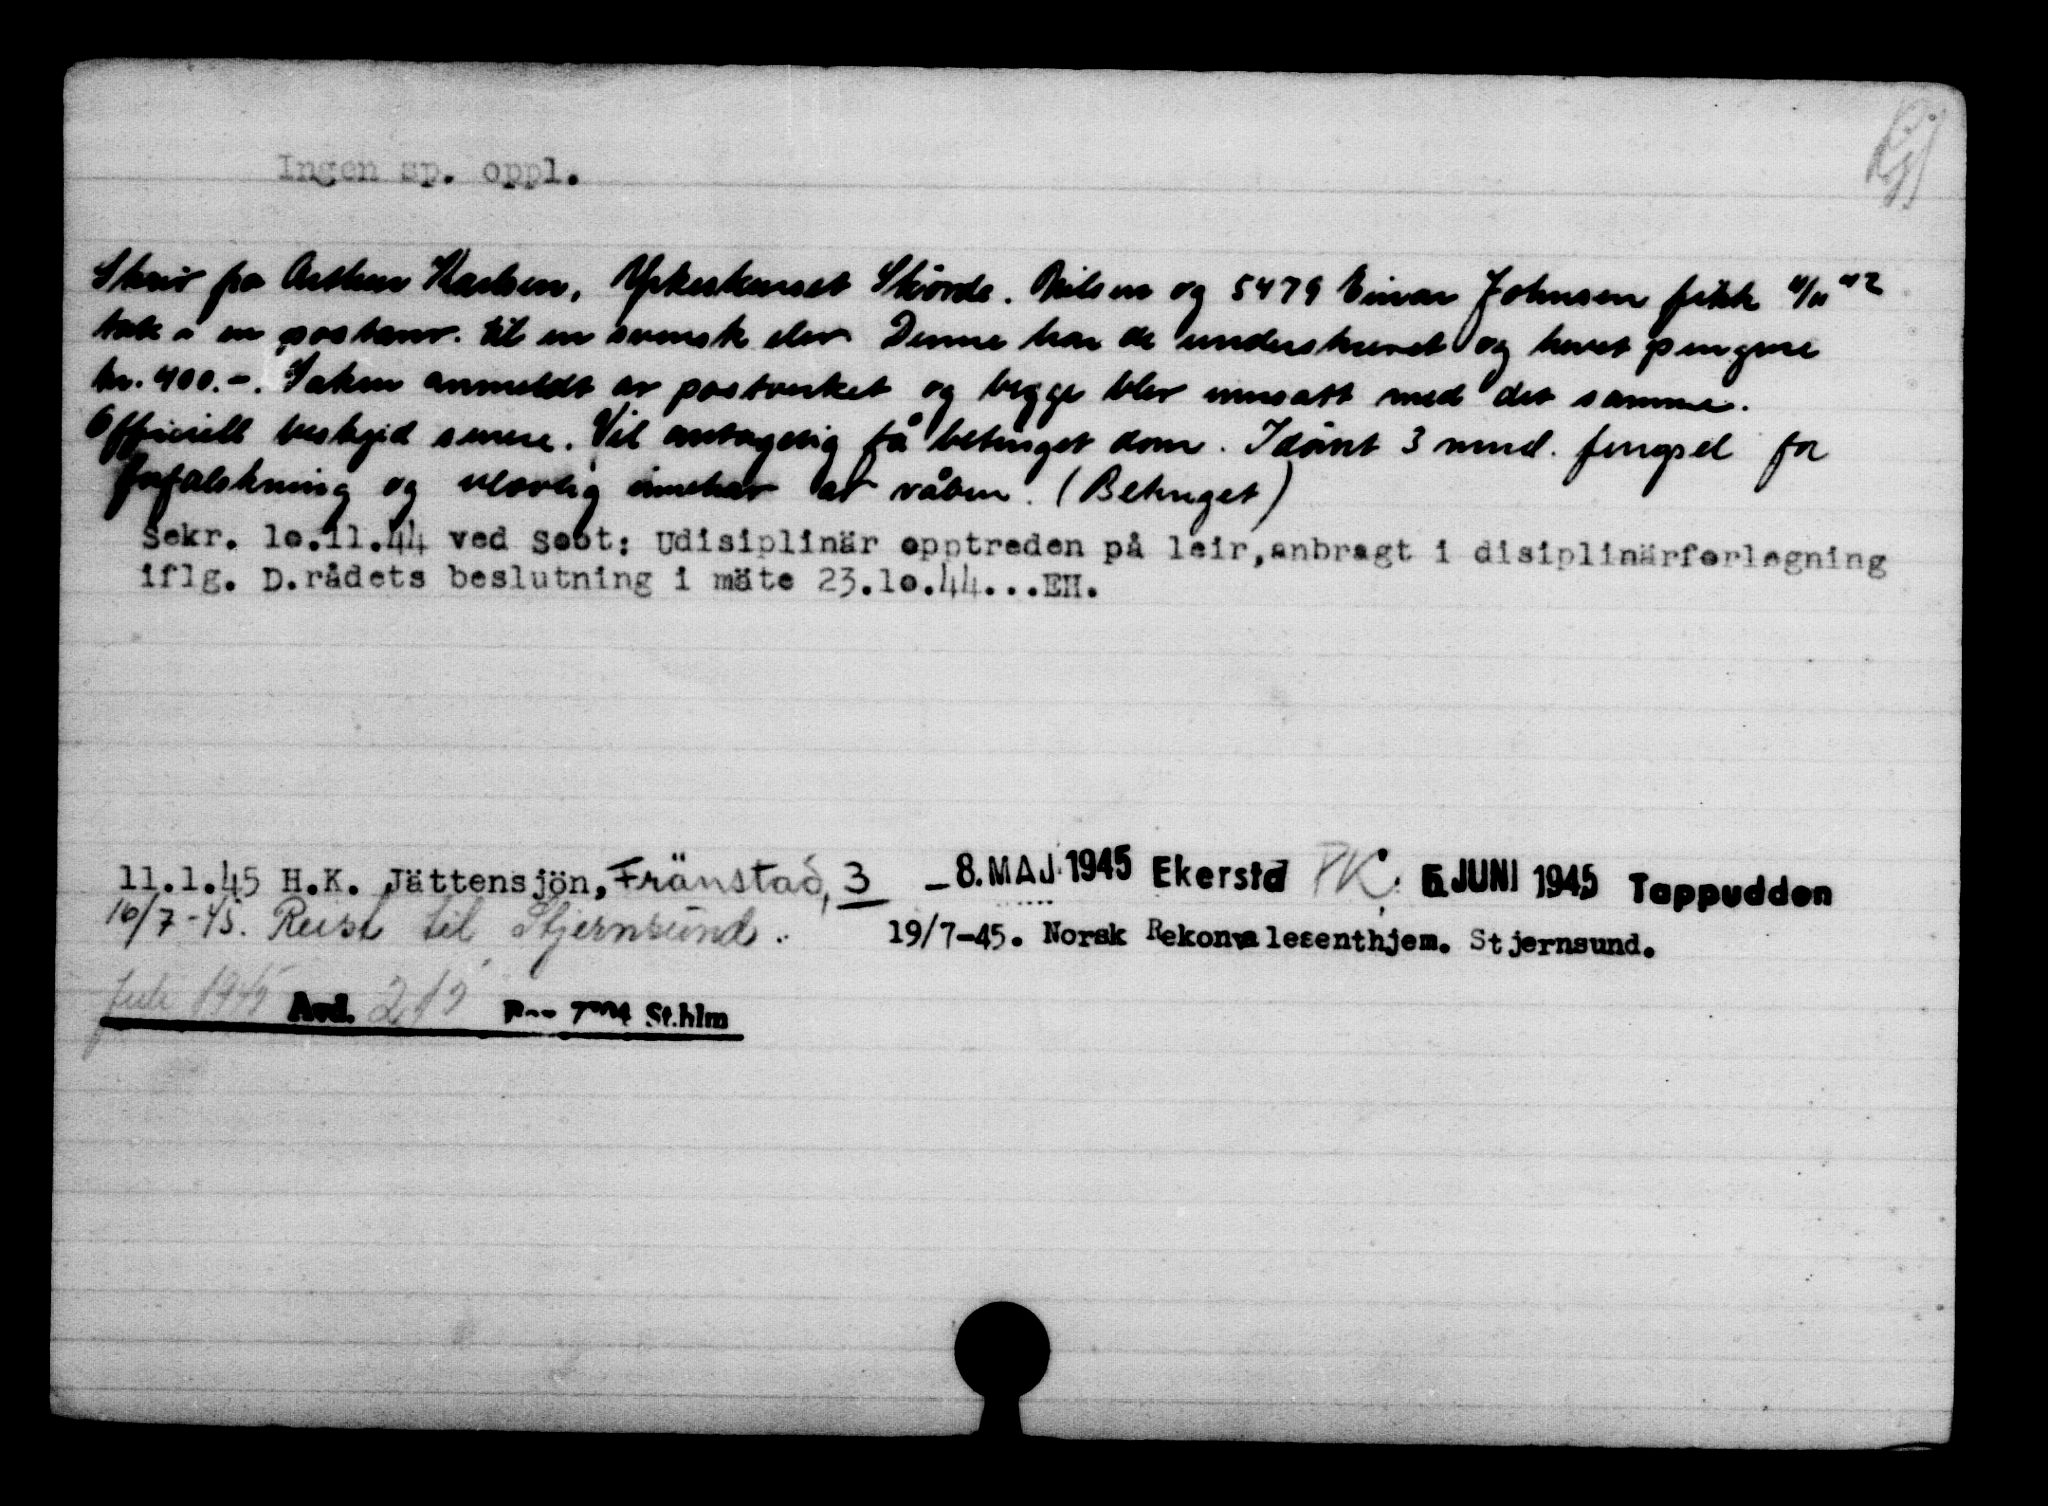 Ingen sp. oppl.
Skriv fra Arthur Karlsen, Yrkeskurset Skövde. Nilsen og 5479 Einar Johnsen fikk 11/11 42
tak i en postanv. til en svensk elev Denne har de underskrevet og hevet pengene
kr. 400.-. Saken anmeldt av postverket og begge blev innsatt med det samme.
Officiell beskjed senere. Vil antagelig få betinget dom. Idömt 3 mnd. fengsel for
forfalskning og ulovlig innehav av våben. (Betinget)
Sekr. 10.11.44 ved Sbot: Udisiplinär opptreden på leir, anbragt i disiplinärforlegning
iflg. D.rådets beslutning i mäte 23.10.44...EH.
11.1.45 H.K. Jättensjön, Fränstad, 3 -8. MAJ 1945 Ekerstd PK. 5 JUNI 1945 Tappudden
16/7-45. Reist til Stjernsund. 19/7-45. Norsk Rekonvalesenthjem. Stjernsund.
Juli 1945 Avd. St.hlm